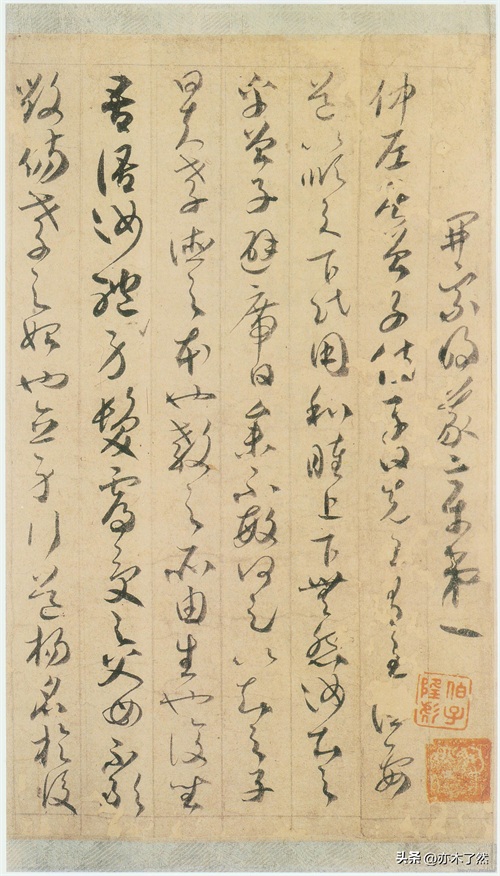 開宗明義章第一
仲尼居曾子侍子曰先王有至德要
道以順天下民用和睦上下無怨汝知之
乎曾子避席曰參不敏何足以知之子
曰夫孝德之本也教之所由生也復坐
吾語汝體身髮膚受之父母不敢
毀傷孝之始也立身行道揚名於後
头条 @亦木了然